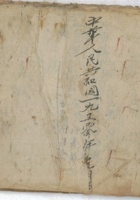 中華人民共和國一九五